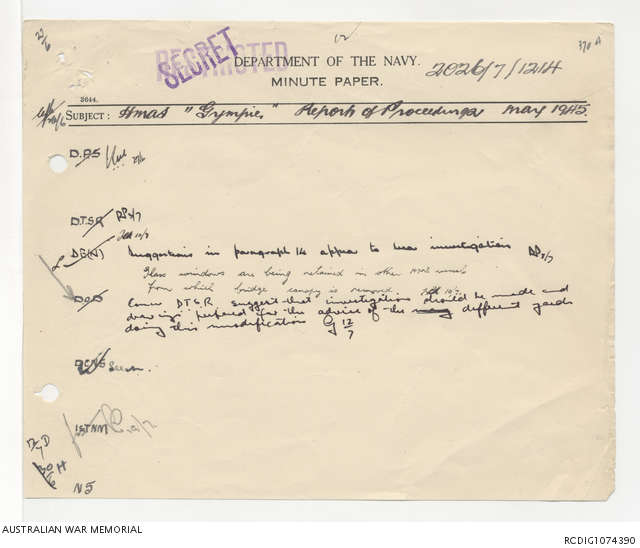 22/6
12
370 A
SECRET
RESTRICTED
DEPARTMENT OF THE NAVY.
MINUTE PAPER.
2026/7/1214
3644.
SUBJECT: HMAS "Gympie." Report of Proceedings May 1945.
D.P.S
D.T.S.R 2/7
DE(N) Suggestions in paragraph 14 appear to bear investigation 2/7
Glass windows are being retained in other vessels
from which bridge canopy is removed 10/7
DOD Concur DTSR. Suggest that investigations should be made and
drawings prepared for the advice of the different yards
doing this modification 12/7
DCNS Seen.
1ST NM
N5
AUSTRALIAN WAR MEMORIAL
RCDIG1074390